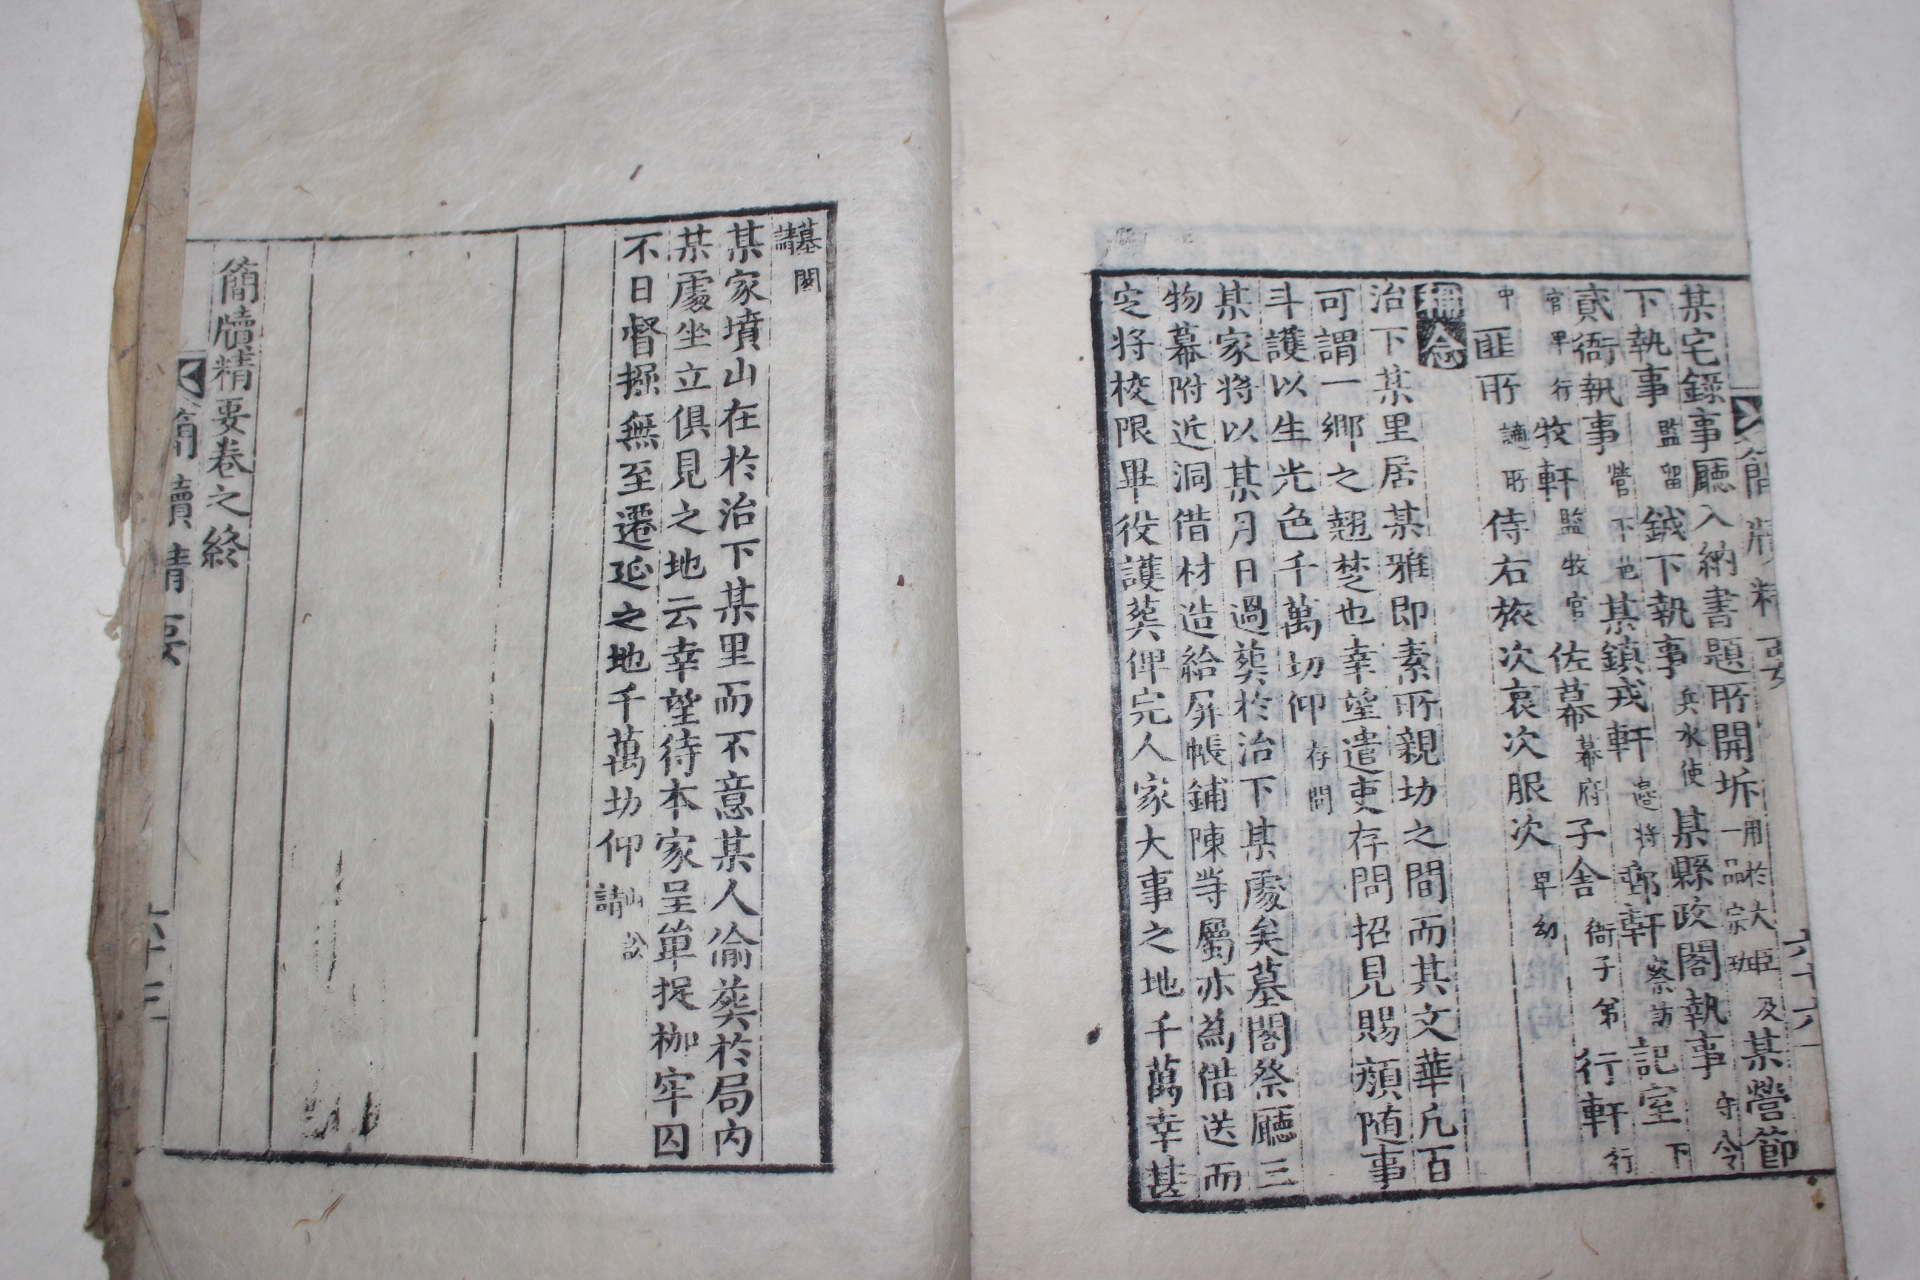 某宅錄事廳入納書題所開坼用於大臣及一品宗班某營節
下執事監留鉞下執事兵水使某縣政閣執事守令
貳衙執事營下邑某鎮戎軒邊將郵軒察訪記室下
官單行牧軒監牧官佐幕幕府子舍衙子弟行軒行
中匪所謫所侍右旅次哀次服次卑幼
治下某里居某雅即素所親切之間而其文華凡百
可謂一鄉之翹楚也幸望遣吏存問招見賜顏随事
斗護以生光色千萬切仰存問
某家將以某月日過葬於治下某處矣墓閣祭廳三
物幕附近洞借材造給屏帳鋪陳等屬亦為借送而
定將校限畢役護葬俾完人家大事之地千萬幸甚
墓閣請
某家墳山在於治下某里而不意某人偷葬於局內
某處坐立俱見之地云幸望待本家呈單捉枷牢囚
不日督掘無至遷延之地千萬切仰山訟請
簡牘精要卷之終
簡牘精要
六十三